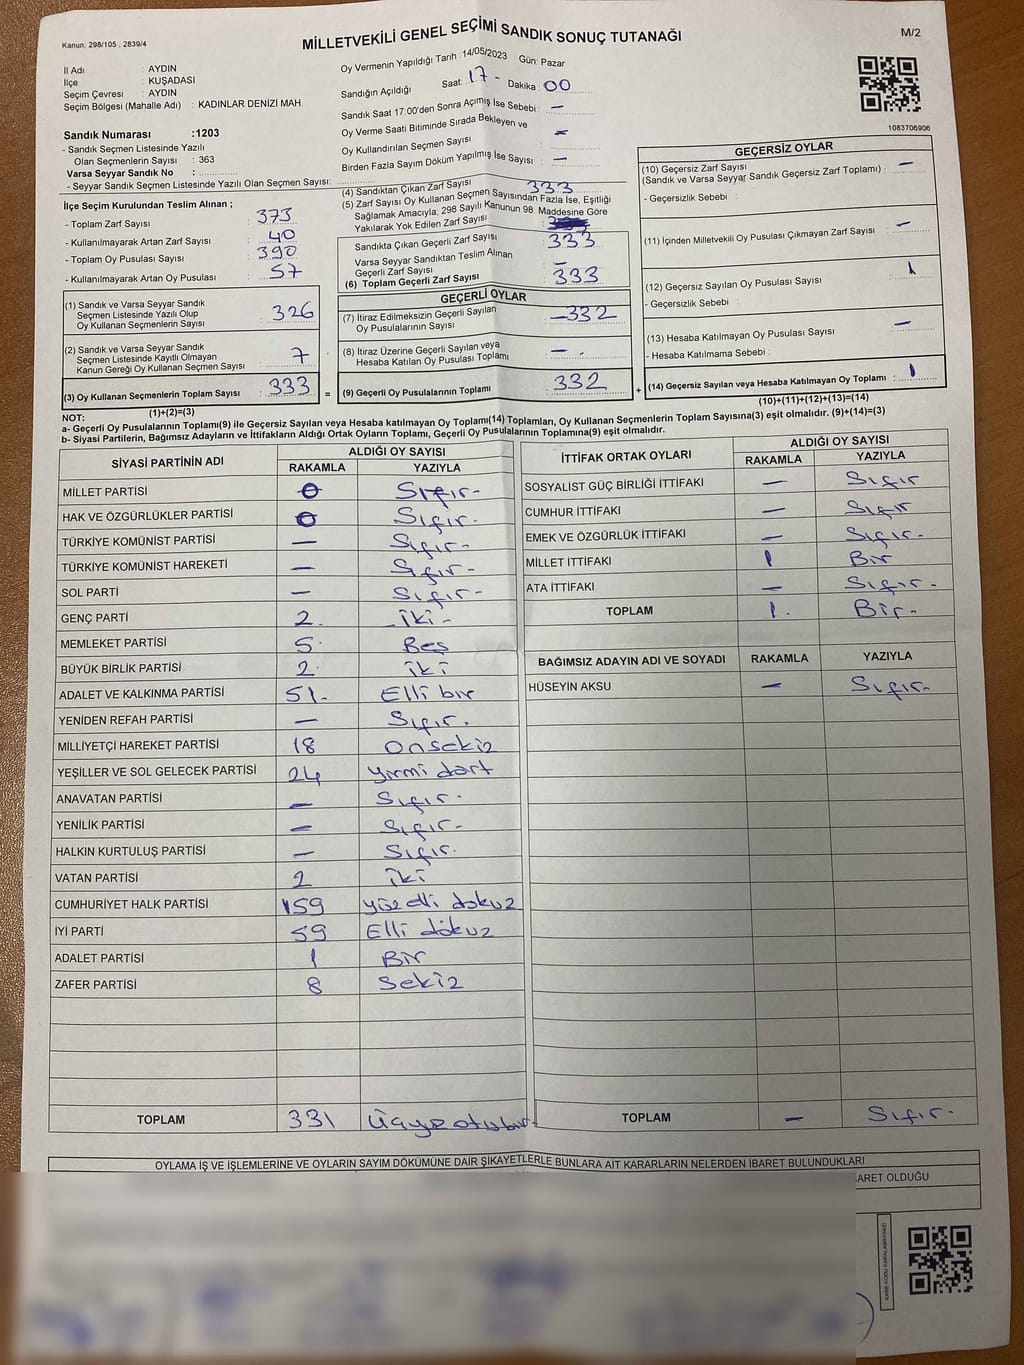 Kanun: 298/105 , 2839/4
MİLLETVEKİLİ GENEL SEÇİMİ SANDIK SONUÇ TUTANAĞI
M/2
İl Adı : AYDIN
İlçe : KUŞADASI
Seçim Çevresi : AYDIN
Seçim Bölgesi (Mahalle Adı) : KADINLAR DENİZİ MAH.
Sandık Numarası :1203
- Sandık Seçmen Listesinde Yazılı
Olan Seçmenlerin Sayısı : 363
Varsa Seyyar Sandık No :
- Seyyar Sandık Seçmen Listesinde Yazılı Olan Seçmen Sayısı:
Oy Vermenin Yapıldığı Tarih : 14/05/2023 Gün: Pazar
Sandığın Açıldığı Saat: 17 - Dakika : 00
Sandık Saat 17:00'den Sonra Açımış İse Sebebi : —
Oy Verme Saati Bitiminde Sırada Bekleyen ve
Oy Kullandırılan Seçmen Sayısı : —
Birden Fazla Sayım Döküm Yapılmış İse Sayısı : —
1083706906
İlçe Seçim Kurulundan Teslim Alınan ;
- Toplam Zarf Sayısı : 373
- Kullanılmayarak Artan Zarf Sayısı : 40
- Toplam Oy Pusulası Sayısı : 390
- Kullanılmayarak Artan Oy Pusulası : 57
(1) Sandık ve Varsa Seyyar Sandık
Seçmen Listesinde Yazılı Olup
Oy Kullanan Seçmenlerin Sayısı : 326
(2) Sandık ve Varsa Seyyar Sandık
Seçmen Listesinde Kayıtlı Olmayan
Kanun Gereği Oy Kullanan Seçmen Sayısı : 7
(3) Oy Kullanan Seçmenlerin Toplam Sayısı : 333 =
(1)+(2)=(3)
(4) Sandıktan Çıkan Zarf Sayısı : 333
(5) Zarf Sayısı Oy Kullanan Seçmen Sayısından Fazla İse, Eşitliği
Sağlamak Amacıyla, 298 Sayılı Kanunun 98. Maddesine Göre
Yakılarak Yok Edilen Zarf Sayısı :
Sandıkta Çıkan Geçerli Zarf Sayısı : 333
Varsa Seyyar Sandıktan Teslim Alınan
Geçerli Zarf Sayısı : —
(6) Toplam Geçerli Zarf Sayısı : 333
GEÇERLİ OYLAR
(7) İtiraz Edilmeksizin Geçerli Sayılan
Oy Pusulalarının Sayısı : —332
(8) İtiraz Üzerine Geçerli Sayılan veya
Hesaba Katılan Oy Pusulası Toplamı : — .
(9) Geçerli Oy Pusulalarının Toplamı : 332 +
GEÇERSİZ OYLAR
(10) Geçersiz Zarf Sayısı
(Sandık ve Varsa Seyyar Sandık Geçersiz Zarf Toplamı) : —
- Geçersizlik Sebebi :
(11) İçinden Milletvekili Oy Pusulası Çıkmayan Zarf Sayısı : —
(12) Geçersiz Sayılan Oy Pusulası Sayısı : 1
- Geçersizlik Sebebi :
(13) Hesaba Katılmayan Oy Pusulası Sayısı : —
- Hesaba Katılmama Sebebi :
(14) Geçersiz Sayılan veya Hesaba Katılmayan Oy Toplamı : 1
(10)+(11)+(12)+(13)=(14)
NOT:
a- Geçerli Oy Pusulalarının Toplamı(9) ile Geçersiz Sayılan veya Hesaba katılmayan Oy Toplamı(14) Toplamları, Oy Kullanan Seçmenlerin Toplam Sayısına(3) eşit olmalıdır. (9)+(14)=(3)
b- Siyasi Partilerin, Bağımsız Adayların ve İttifakların Aldığı Ortak Oyların Toplamı, Geçerli Oy Pusulalarının Toplamına(9) eşit olmalıdır.
SİYASİ PARTİNİN ADI ALDIĞI OY SAYISI
RAKAMLA YAZIYLA
MİLLET PARTİSİ 0 Sıfır-
HAK VE ÖZGÜRLÜKLER PARTİSİ 0 Sıfır.
TÜRKİYE KOMÜNİST PARTİSİ — Sıfır-
TÜRKİYE KOMÜNİST HAREKETİ — Sıfır-
SOL PARTİ — Sıfır-
GENÇ PARTİ 2. İki-
MEMLEKET PARTİSİ 5. Beş
BÜYÜK BİRLİK PARTİSİ 2. İki
ADALET VE KALKINMA PARTİSİ 51- Elli bir
YENİDEN REFAH PARTİSİ — Sıfır.
MİLLİYETÇİ HAREKET PARTİSİ 18 Onsekiz
YEŞİLLER VE SOL GELECEK PARTİSİ 24 yirmi dört
ANAVATAN PARTİSİ — Sıfır.
YENİLİK PARTİSİ — Sıfır-
HALKIN KURTULUŞ PARTİSİ — Sıfır.
VATAN PARTİSİ 2 İki
CUMHURİYET HALK PARTİSİ 159 yüz elli dokuz
İYİ PARTİ 59 Elli dokuz
ADALET PARTİSİ 1 Bir
ZAFER PARTİSİ 8 Sekiz
TOPLAM 331 Üçyüz otuz bir-
İTTİFAK ORTAK OYLARI ALDIĞI OY SAYISI
RAKAMLA YAZIYLA
SOSYALİST GÜÇ BİRLİĞİ İTTİFAKI — Sıfır
CUMHUR İTTİFAKI — Sıfır
EMEK VE ÖZGÜRLÜK İTTİFAKI — Sıfır.
MİLLET İTTİFAKI 1 Bir
ATA İTTİFAKI — Sıfır.
TOPLAM 1. Bir-
BAĞIMSIZ ADAYIN ADI VE SOYADI RAKAMLA YAZIYLA
HÜSEYİN AKSU — Sıfır.
TOPLAM — Sıfır.
OYLAMA İŞ VE İŞLEMLERİNE VE OYLARIN SAYIM DÖKÜMÜNE DAİR ŞİKAYETLERLE BUNLARA AİT KARARLARIN NELERDEN İBARET BULUNDUKLARI
ARET OLDUĞU
KARE KODU KARALAMAYINIZ!